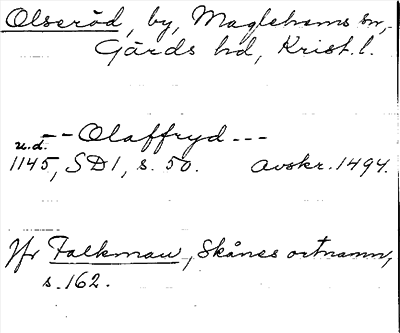 Olseröd, by, Maglehems sn,
Gärds hd, Krist. l.
-- Olaffryd ---
u.d.
1145, SD1, s. 50. Avskr. 1494.
Jfr Falkman, Skånes ortnamn,
s. 162.